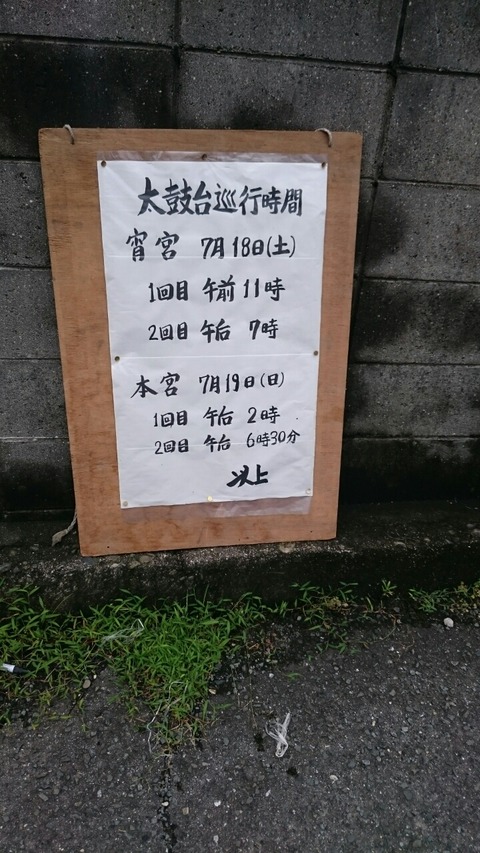 太鼓台巡行時間
宵宮 7月18日(土)
1回目 午前 11時
2回目 午后 7時
本宮 7月19日(日)
1回目 午后 2時
2回目 午后 6時30分
以上